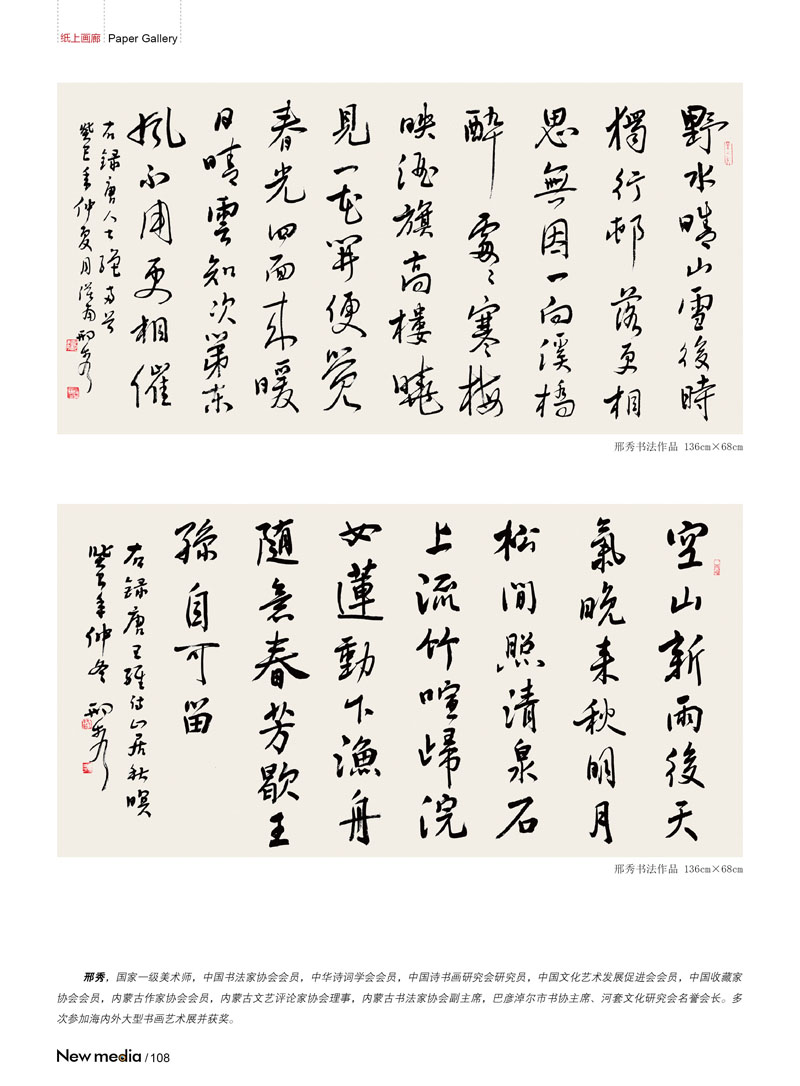 纸上画廊 Paper Gallery
野水晴山雪後時
獨行邨落更相
思無因一向溪橋
醉處〻寒梅
映酒旗高樓曉
見一花開便覺
春光四面來暖
日晴雲知次第東
風不用更相催
右録唐人士
癸巳年仲夏月 邢秀
邢秀书法作品 136cm×68cm
空山新雨後天
氣晚来秋明月
松間照清泉石
上流竹喧歸浣
女蓮動下漁舟
随意春芳歇王
孫自可留
右録唐王維诗山居秋暝
癸巳年仲冬 邢秀
邢秀书法作品 136cm×68cm
邢秀，国家一级美术师，中国书法家协会会员，中华诗词学会会员，中国诗书画研究会研究员，中国文化艺术发展促进会会员，中国收藏家
协会会员，内蒙古作家协会会员，内蒙古文艺评论家协会理事，内蒙古书法家协会副主席，巴彦淖尔市书协主席、河套文化研究会名誉会长。多
次参加海内外大型书画艺术展并获奖。
New media / 108